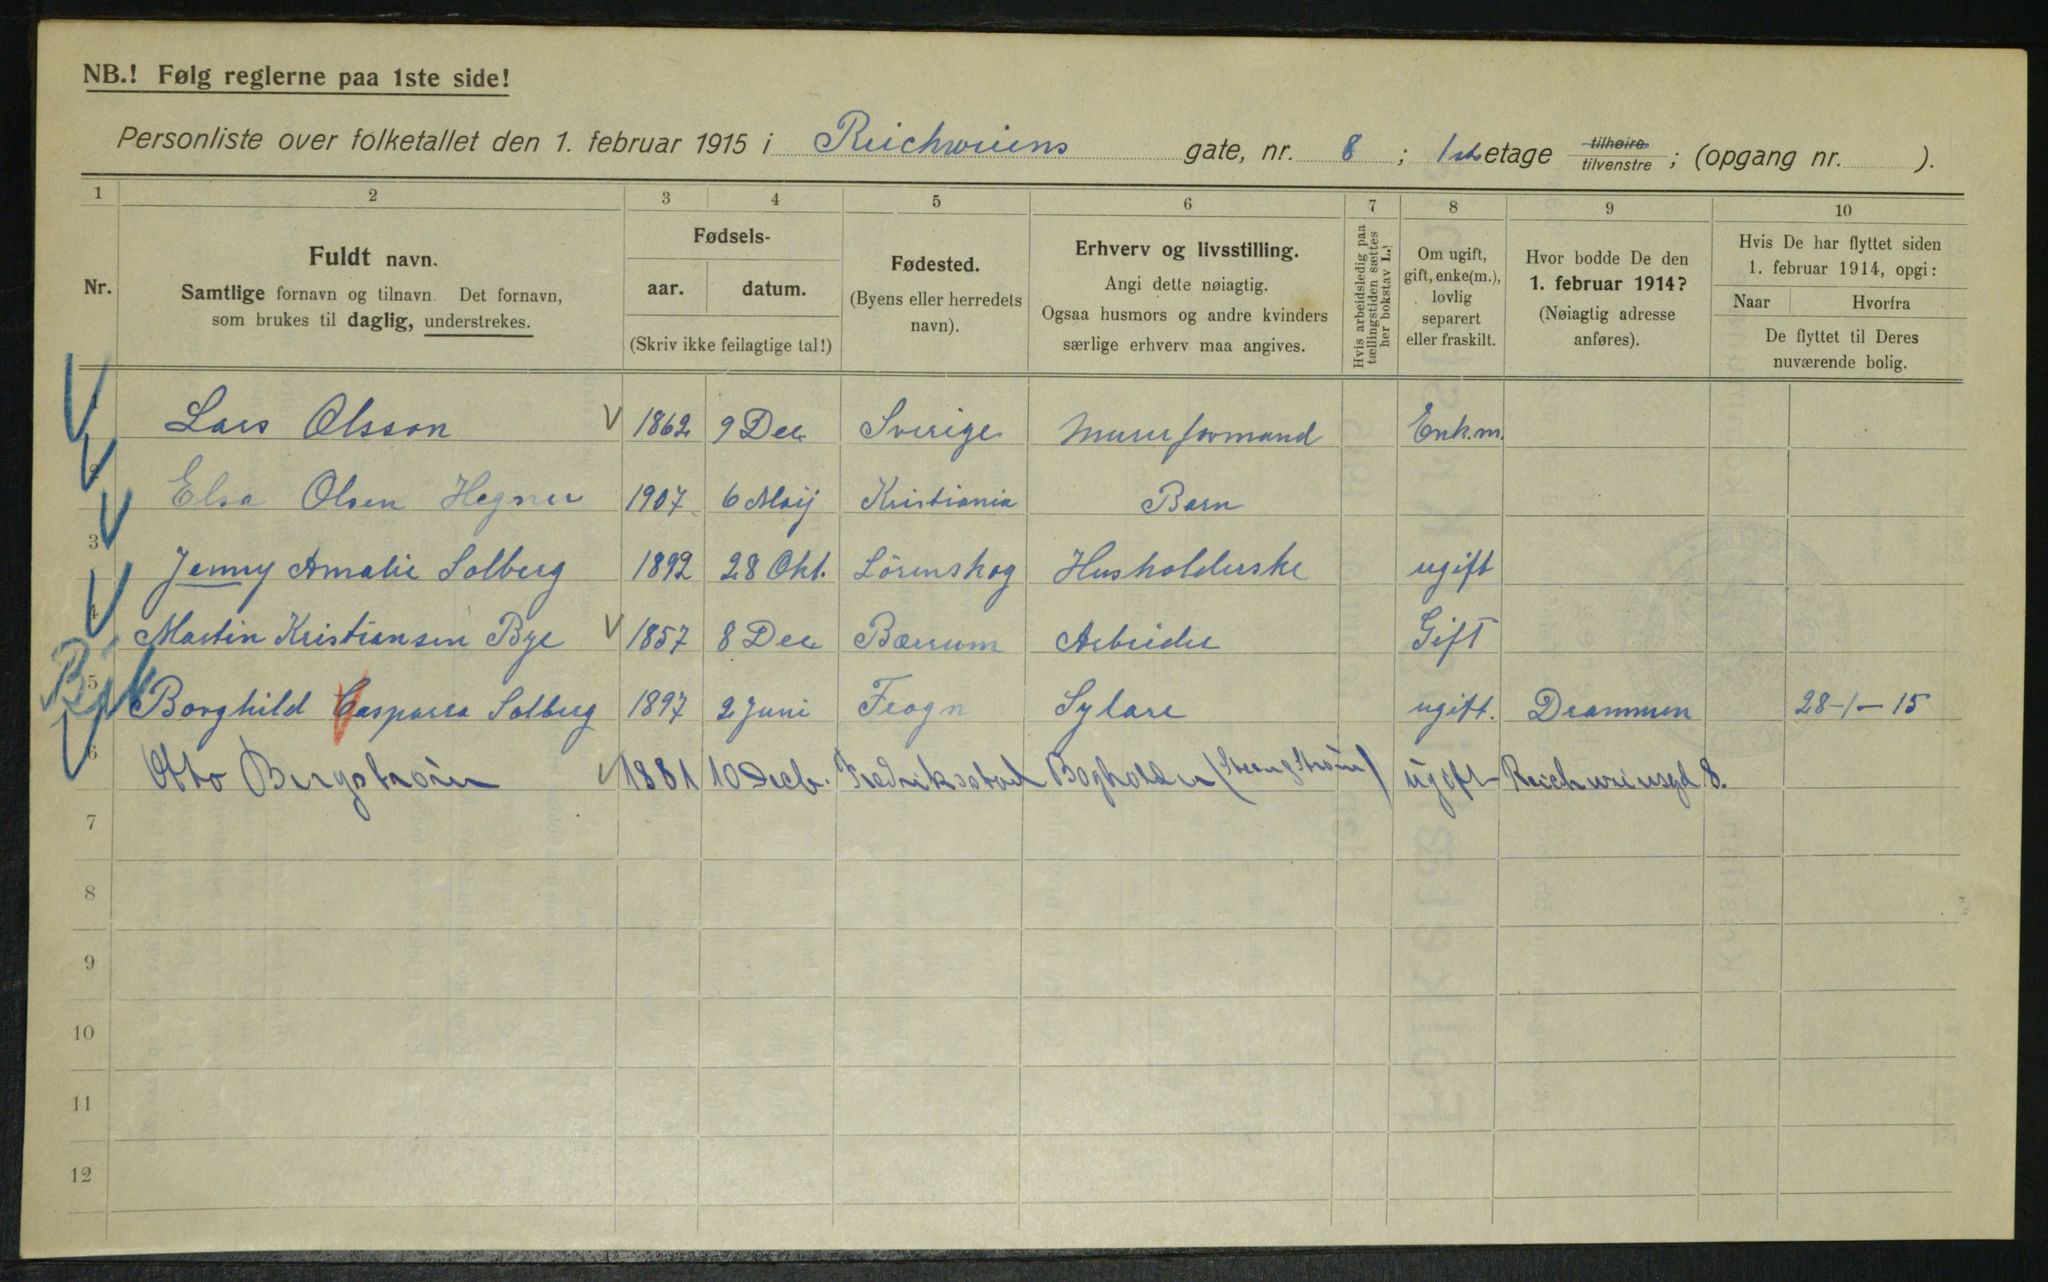 NB.! Følg reglerne paa 1ste side!
Personliste over folketallet den 1. februar 1915 i Reichweins gate, nr. 8 ; 1ste etage tilhøire tilvenstre ; (opgang nr. ).
1 2 3 4 5 6 7 8 9 10
Nr.
Fuldt navn.
Samtlige fornavn og tilnavn. Det fornavn,
som brukes til daglig, understrekes.
Fødsels-
aar. datum.
(Skriv ikke feilagtige tal!)
Fødested.
(Byens eller herredets
navn).
Erhverv og livsstilling.
Angi dette nøiagtig.
Ogsaa husmors og andre kvinders
særlige erhverv maa angives.
Hvis arbeidsledig paa
tællingstiden sættes
her bokstav L.!
Om ugift,
gift, enke(m.),
lovlig
separert
eller fraskilt.
Hvor bodde De den
1. februar 1914?
(Nøiagtig adresse
anføres).
Hvis De har flyttet siden
1. februar 1914, opgi:
Naar Hvorfra
De flyttet til Deres
nuværende bolig.
1 Lars Olsson 1862 9 Dec Sverige Murerformand Enk.m.
2 Elsa Olsen Hegner 1907 6 Maij Kristiania Barn
3 Jenny Amalie Solberg 1892 28 Okt. Lörenskog Husholderske ugift
4 Martin Kristiansen Bye 1857 8 Dec Bærrum Arbeider Gift
5 Borghild Caspara Solberg 1897 2 Juni Frogn Sylære ugift. Drammen 28-1-15
6 Otto Bergstrøm 1881 10 Decb. Fredriksstad Bogholder ugift Reichweinsgd 8.
7
8
9
10
11
12